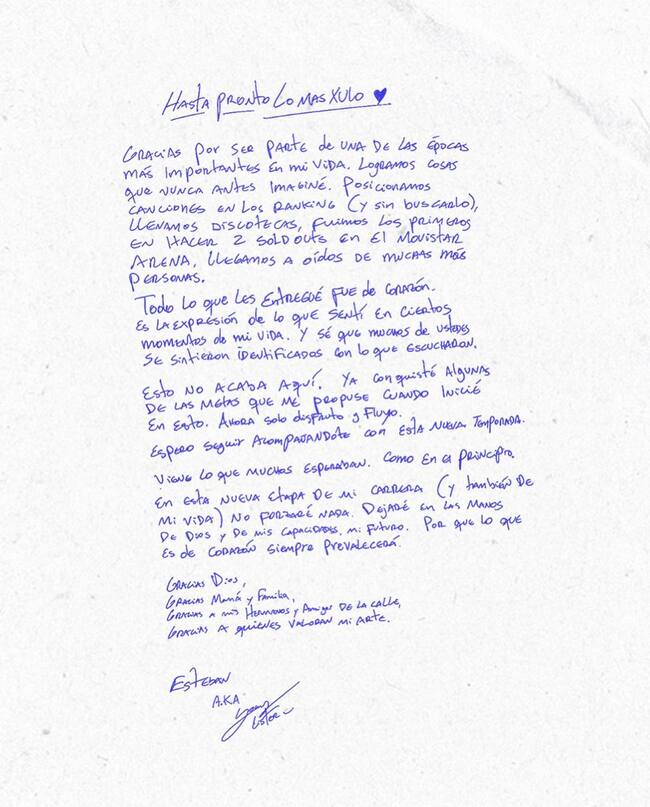 Hasta pronto Lo mas xulo ♥
Gracias por ser parte de una de las épocas
más importantes en mi vida. Logramos cosas
que nunca antes imaginé. Posicionamos
canciones en los ranking (y sin buscarlo),
llenamos discotecas, fuimos los primeros
en hacer 2 sold outs en el Movistar
Arena. Llegamos a oídos de muchas más
personas.
Todo lo que les entregué fue de corazón.
Es la expresión de lo que sentí en ciertos
momentos de mi vida. Y sé que muchos de ustedes
se sintieron identificados con lo que escucharon.
Esto no acaba aquí. Ya conquisté algunas
de las metas que me propuse cuando inicié
en esto. Ahora solo disfruto y fluyo.
Espero seguir acompañandote con esta nueva temporada.
Viene lo que muchos esperaban. Como en el principio.
En esta nueva etapa de mi carrera (y también de
mi vida) no forzaré nada. Dejaré en las manos
de Dios y de mis capacidades, mi futuro. Por que lo que
es de corazón siempre prevalecerá.
Gracias Dios,
Gracias Mamá y Familia,
Gracias a mis Hermanos y Amigos de la calle,
Gracias a quienes valoran mi arte.
Esteban
A.K.A
Young
Lister